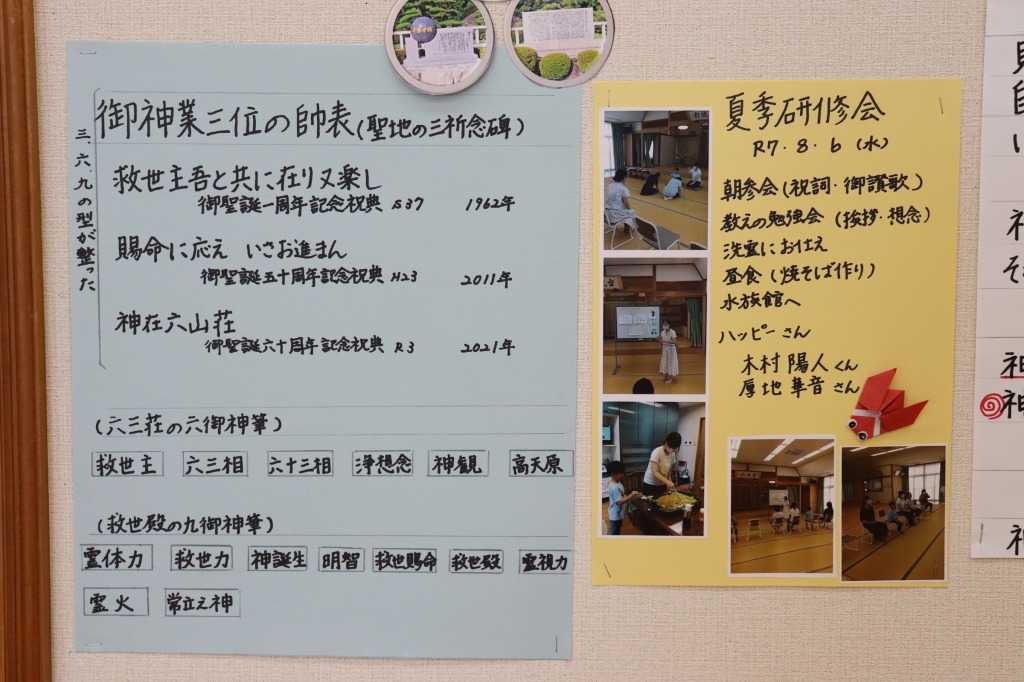 御神業三位の帥表(聖地の三祈念碑)
三、六、九の型が整った
救世主吾と共に在り又楽し
御聖誕一周年記念祝典 S37 1962年
賜命に応え いさお進まん
御聖誕五十周年記念祝典 H23 2011年
神在六山荘
御聖誕六十周年記念祝典 R3 2021年
(六三荘の六御神筆)
救世主 六三相 六十三相 浄想念 神観 高天原
(救世殿の九御神筆)
霊体力 救世力 神誕生 明智 救世賜命 救世殿 霊視力
霊火 常立之神
夏季研修会
R7・8・6 (水)
朝参会(祝詞・御讃歌)
教えの勉強会(挨拶・想念)
洗霊にお仕え
昼食(焼そば作り)
水族館へ
ハッピーさん
木村陽人くん
厚地華音さん